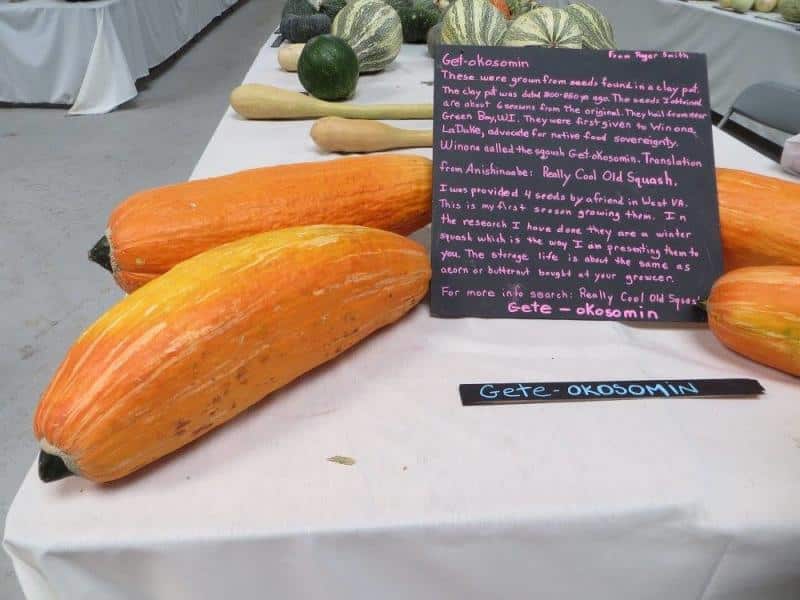 Get-okosomin
From Roger Smith
These were grown from seeds found in a clay pot.
The clay pot was dated 800-850 yr ago. The seeds I obtained
are about 6 seasons from the original. They hail from near
Green Bay, WI. They were first given to Winona
LaDuke, advocate for native food sovereignty.
Winona called the squash Get-okosomin. Translation
from Anishinaabe: Really Cool Old Squash.
I was provided 4 seeds by a friend in West VA.
This is my first season growing them. In
the research I have done they are a winter
squash which is the way I am presenting them to
you. The storage life is about the same as
acorn or butternut bought at your grocer.
For more info search: Really Cool Old Squash
Gete-okosomin
Gete-OKOSOMIN